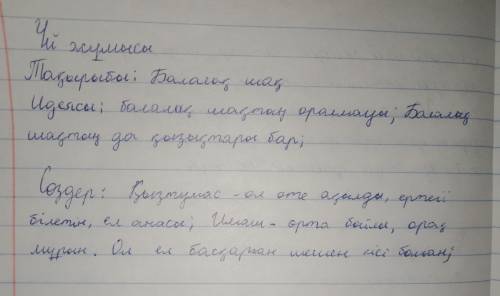 Үй жұмысы
Тақырыбы: Балалық шақ
Идеясы: балалық шақтың оралмауы; Балалық
шақтың да қызықтары бар;
Сөздер: Қызтумас - ол өте ақылды, ертегі
білетін, ел анасы; Имаш - орта бойлы, орақ
мұрын. Ол ел басқарған шешен кісі болған;